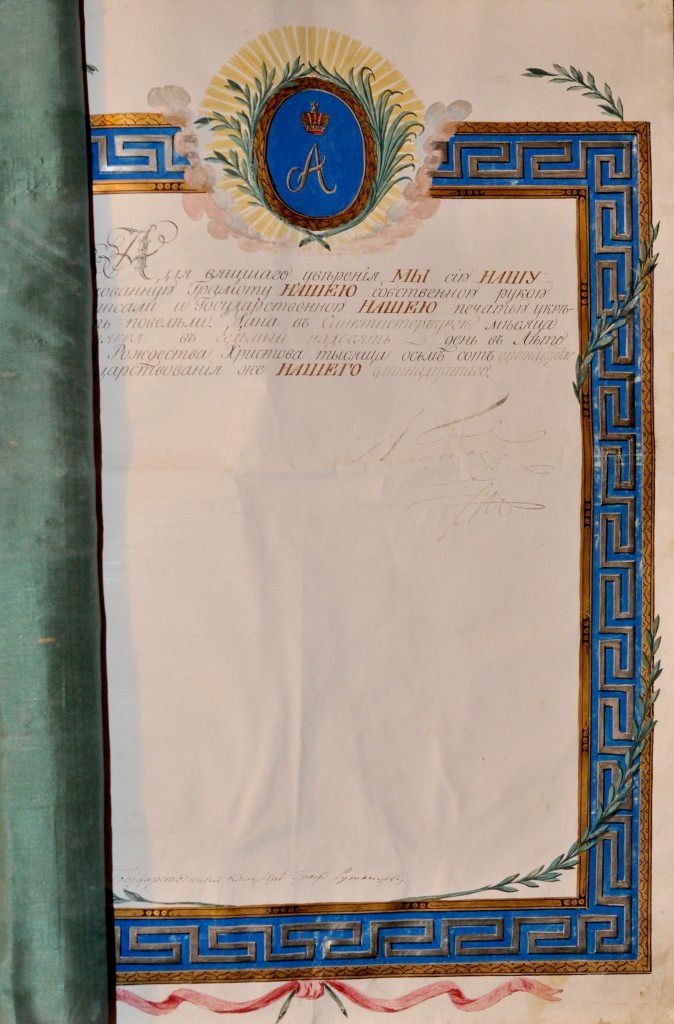 А
На для вящшаго увѣренія, МЫ сію НАШУ
жалованную Грамоту НАШЕЮ собственною рукою
подписали и Государственною НАШЕЮ печатью укрѣ-
пить повелѣли. Дана въ Санктпетербургѣ мѣсяца
въ седьмый надесять день въ Лѣто
Рождества Христова тысяща осмь сотъ
Государствованія же НАШЕГО
Государственный Канцлер Граф Румянцовъ